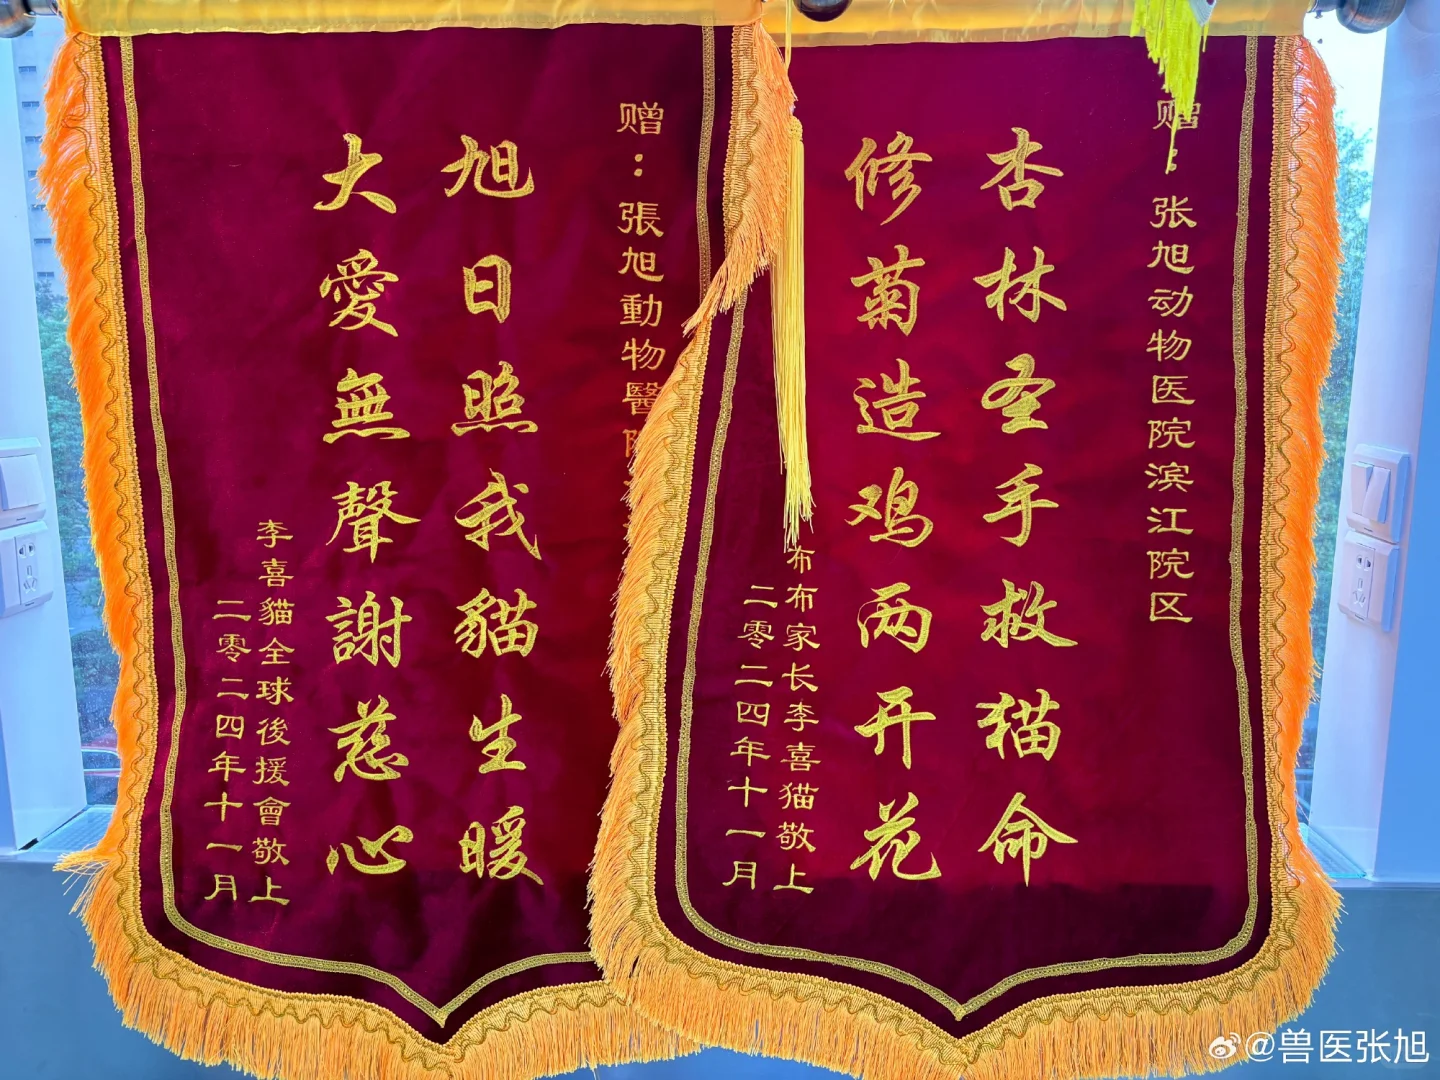 赠：张旭动物医院滨江院区
杏林圣手救猫命
修菊造鸡两开花
布布家长李喜猫敬上
二零二四年十一月
赠：張旭動物醫院
旭日照我貓生暖
大愛無聲謝慈心
李喜貓全球後援會敬上
二零二四年十一月
@兽医张旭